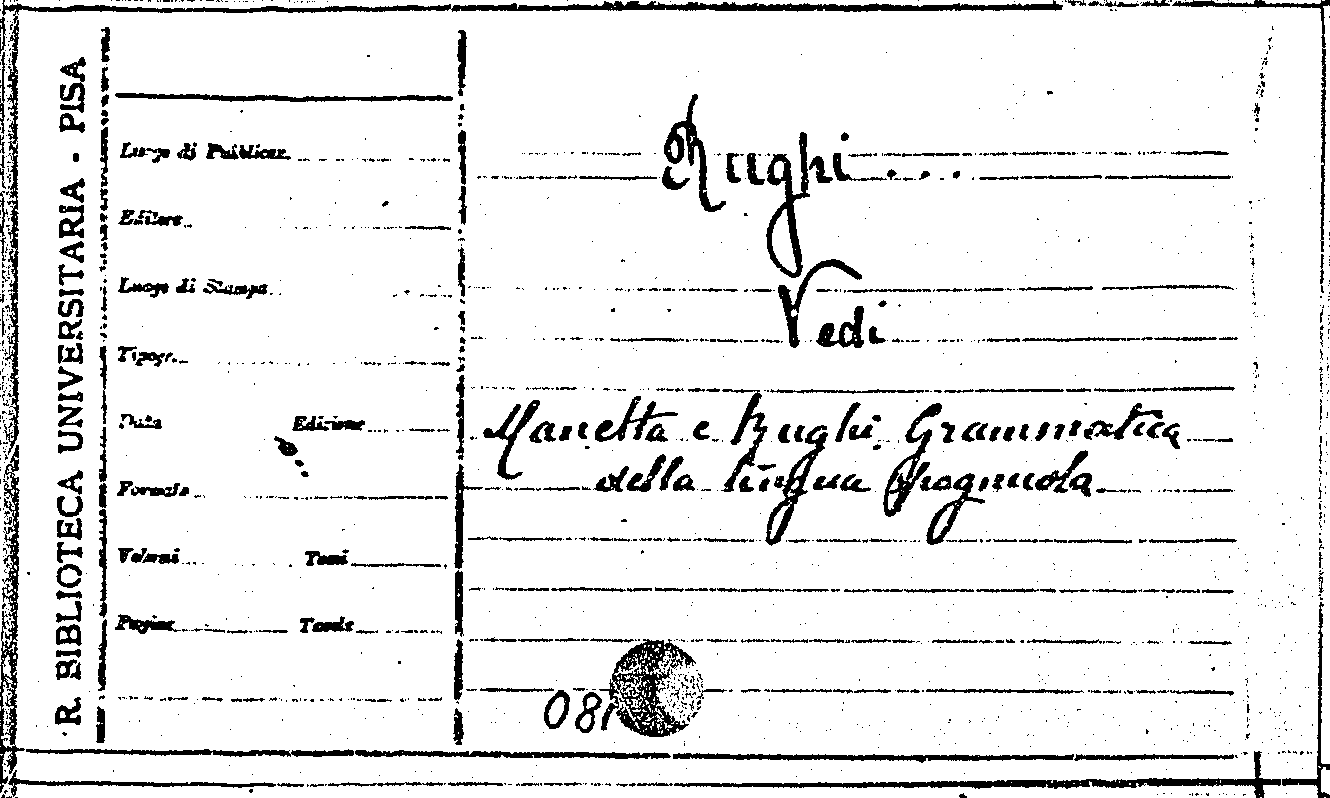 R. BIBLIOTECA UNIVERSITARIA - PISA
Luogo di Pubblicaz.
Editore
Luogo di Stampa
Tipogr.
Data Edizione
Formato
Volumi Tomi
Pagine Tavole
Rughi . . .
Vedi
Manetta e Rughi. Grammatica
della lingua spagnuola.
081